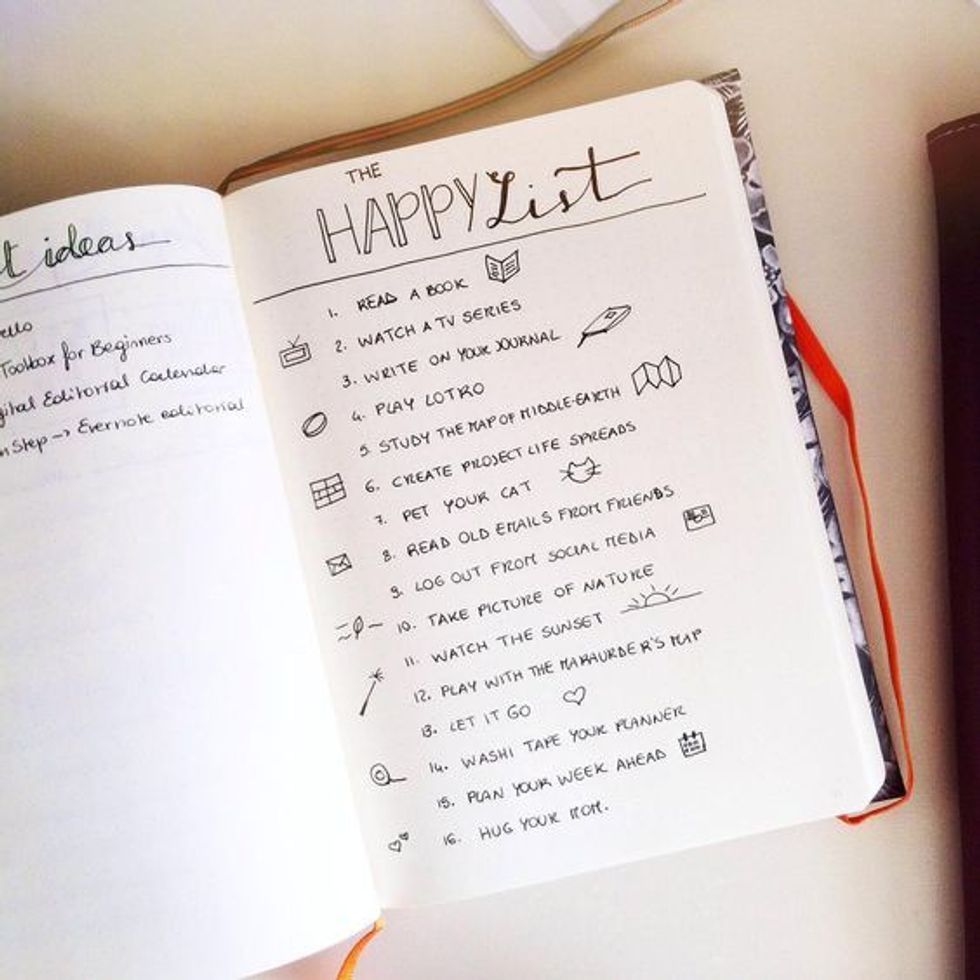 t ideas
Toolbox for Beginners
gital Editorial Calendar
n Step -> Evernote editorial
THE
HAPPY List
1. READ A BOOK
2. WATCH A TV SERIES
3. WRITE ON YOUR JOURNAL
4. PLAY LOTRO
5. STUDY THE MAP OF MIDDLE-EARTH
6. CREATE PROJECT LIFE SPREADS
7. PET YOUR CAT
8. READ OLD EMAILS FROM FRIENDS
9. LOG OUT FROM SOCIAL MEDIA
10. TAKE PICTURE OF NATURE
11. WATCH THE SUNSET
12. PLAY WITH THE MARAURDER'S MAP
13. LET IT GO
14. WASHI TAPE YOUR PLANNER
15. PLAN YOUR WEEK AHEAD
16. HUG YOUR MOM.